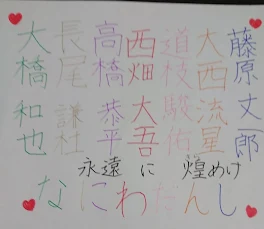 藤原丈一郎
大西流星
道枝駿佑
西畑大吾
高橋恭平
長尾謙杜
大橋和也
永遠に煌めけ
なにわだんし